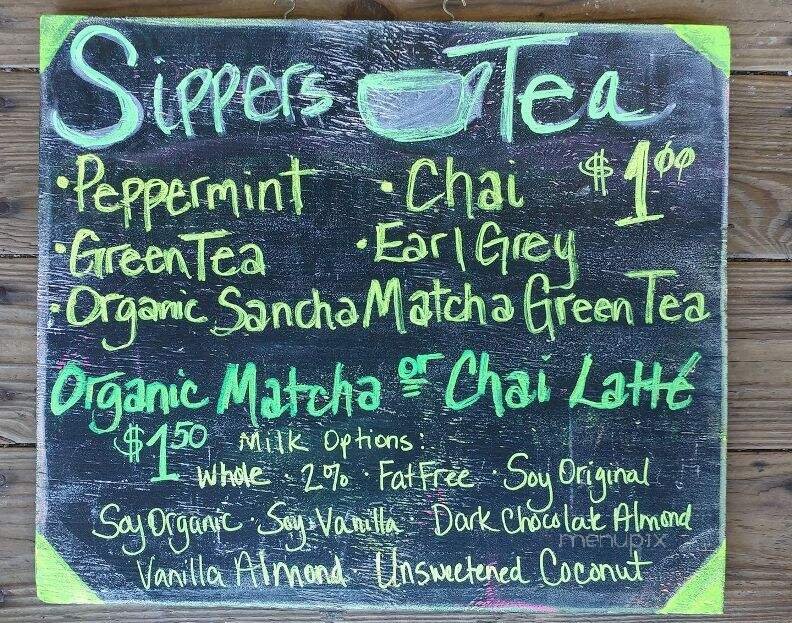 Sippers Tea
• Peppermint • Chai $1.00
• Green Tea • Earl Grey
• Organic Sancha Matcha Green Tea
Organic Matcha or Chai Latté
$1.50 Milk Options:
Whole · 2% · Fat Free · Soy Original
Soy Organic · Soy Vanilla · Dark Chocolate Almond
menupix
Vanilla Almond · Unsweetened Coconut